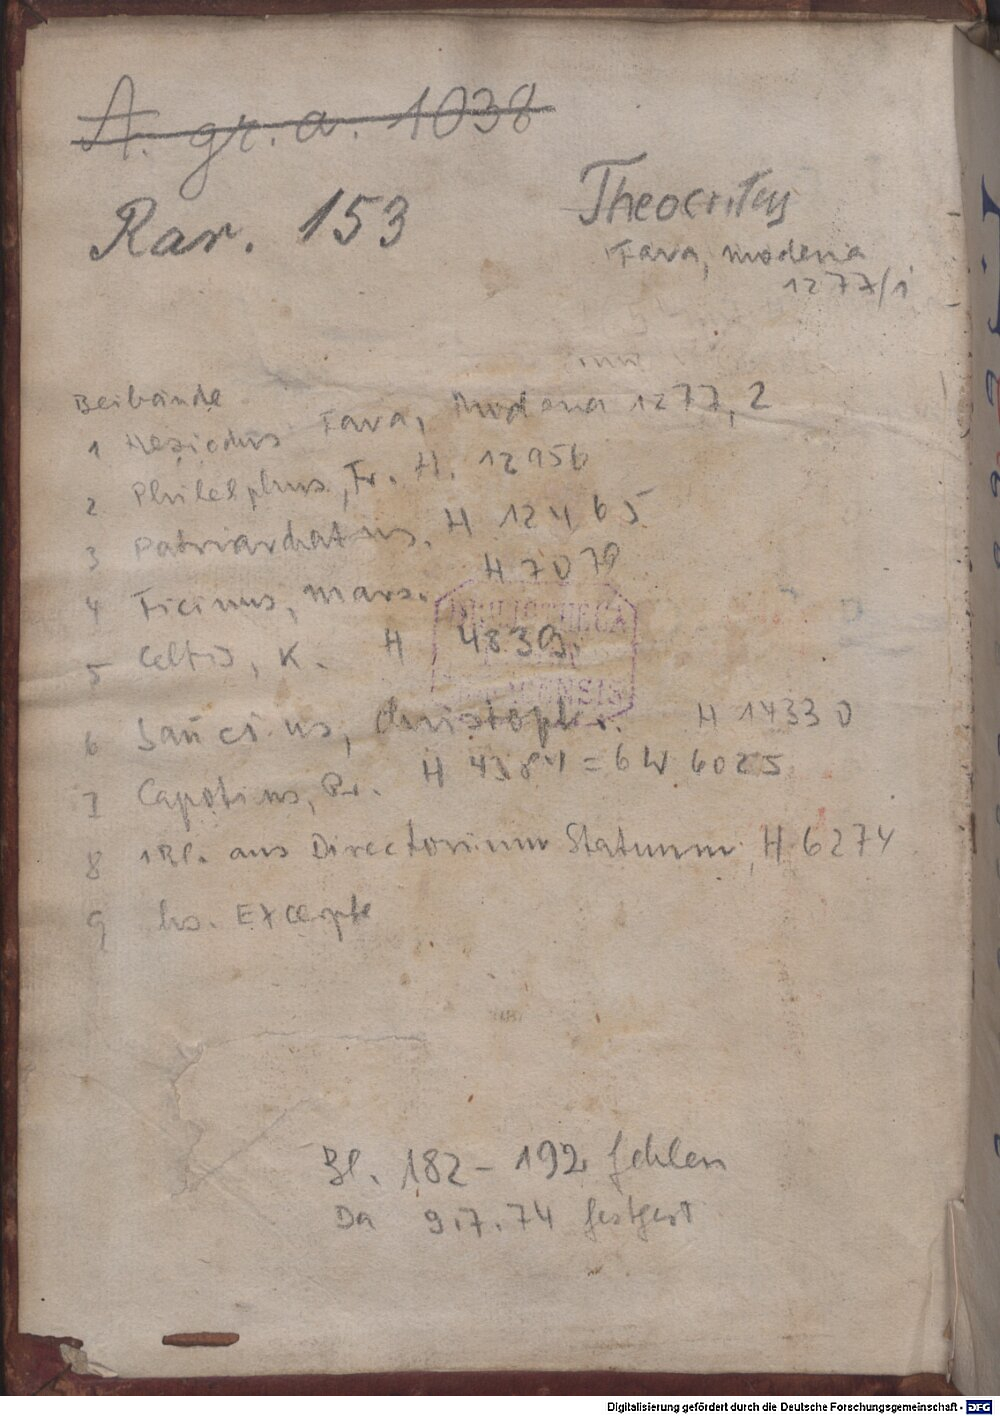 A. gr. a. 1038
Rar. 153
Theocritus
Fava, Modena
1277/1
Beibände
1 Hesiodus Fava, Modena 1277, 2
2 Philelphus, Fr. H. 12956
3 Patriarchatus, H 12465
4 Ficinus, Mars. H 7079
5 Celtis, K. H 4839
6 Sancius, Christoph. H 14330
7 Capotius, Pr. H 4384 = GW 6025
8 1 Bl. aus Directorium Statuum, H 6274
9 hs. Excerpte
BIBLIOTHECA
REGIA
MONACENSIS
Bl. 182 - 192 fehlen
Da 9.7.74 festgest
Digitalisierung gefördert durch die Deutsche Forschungsgemeinschaft - DFG